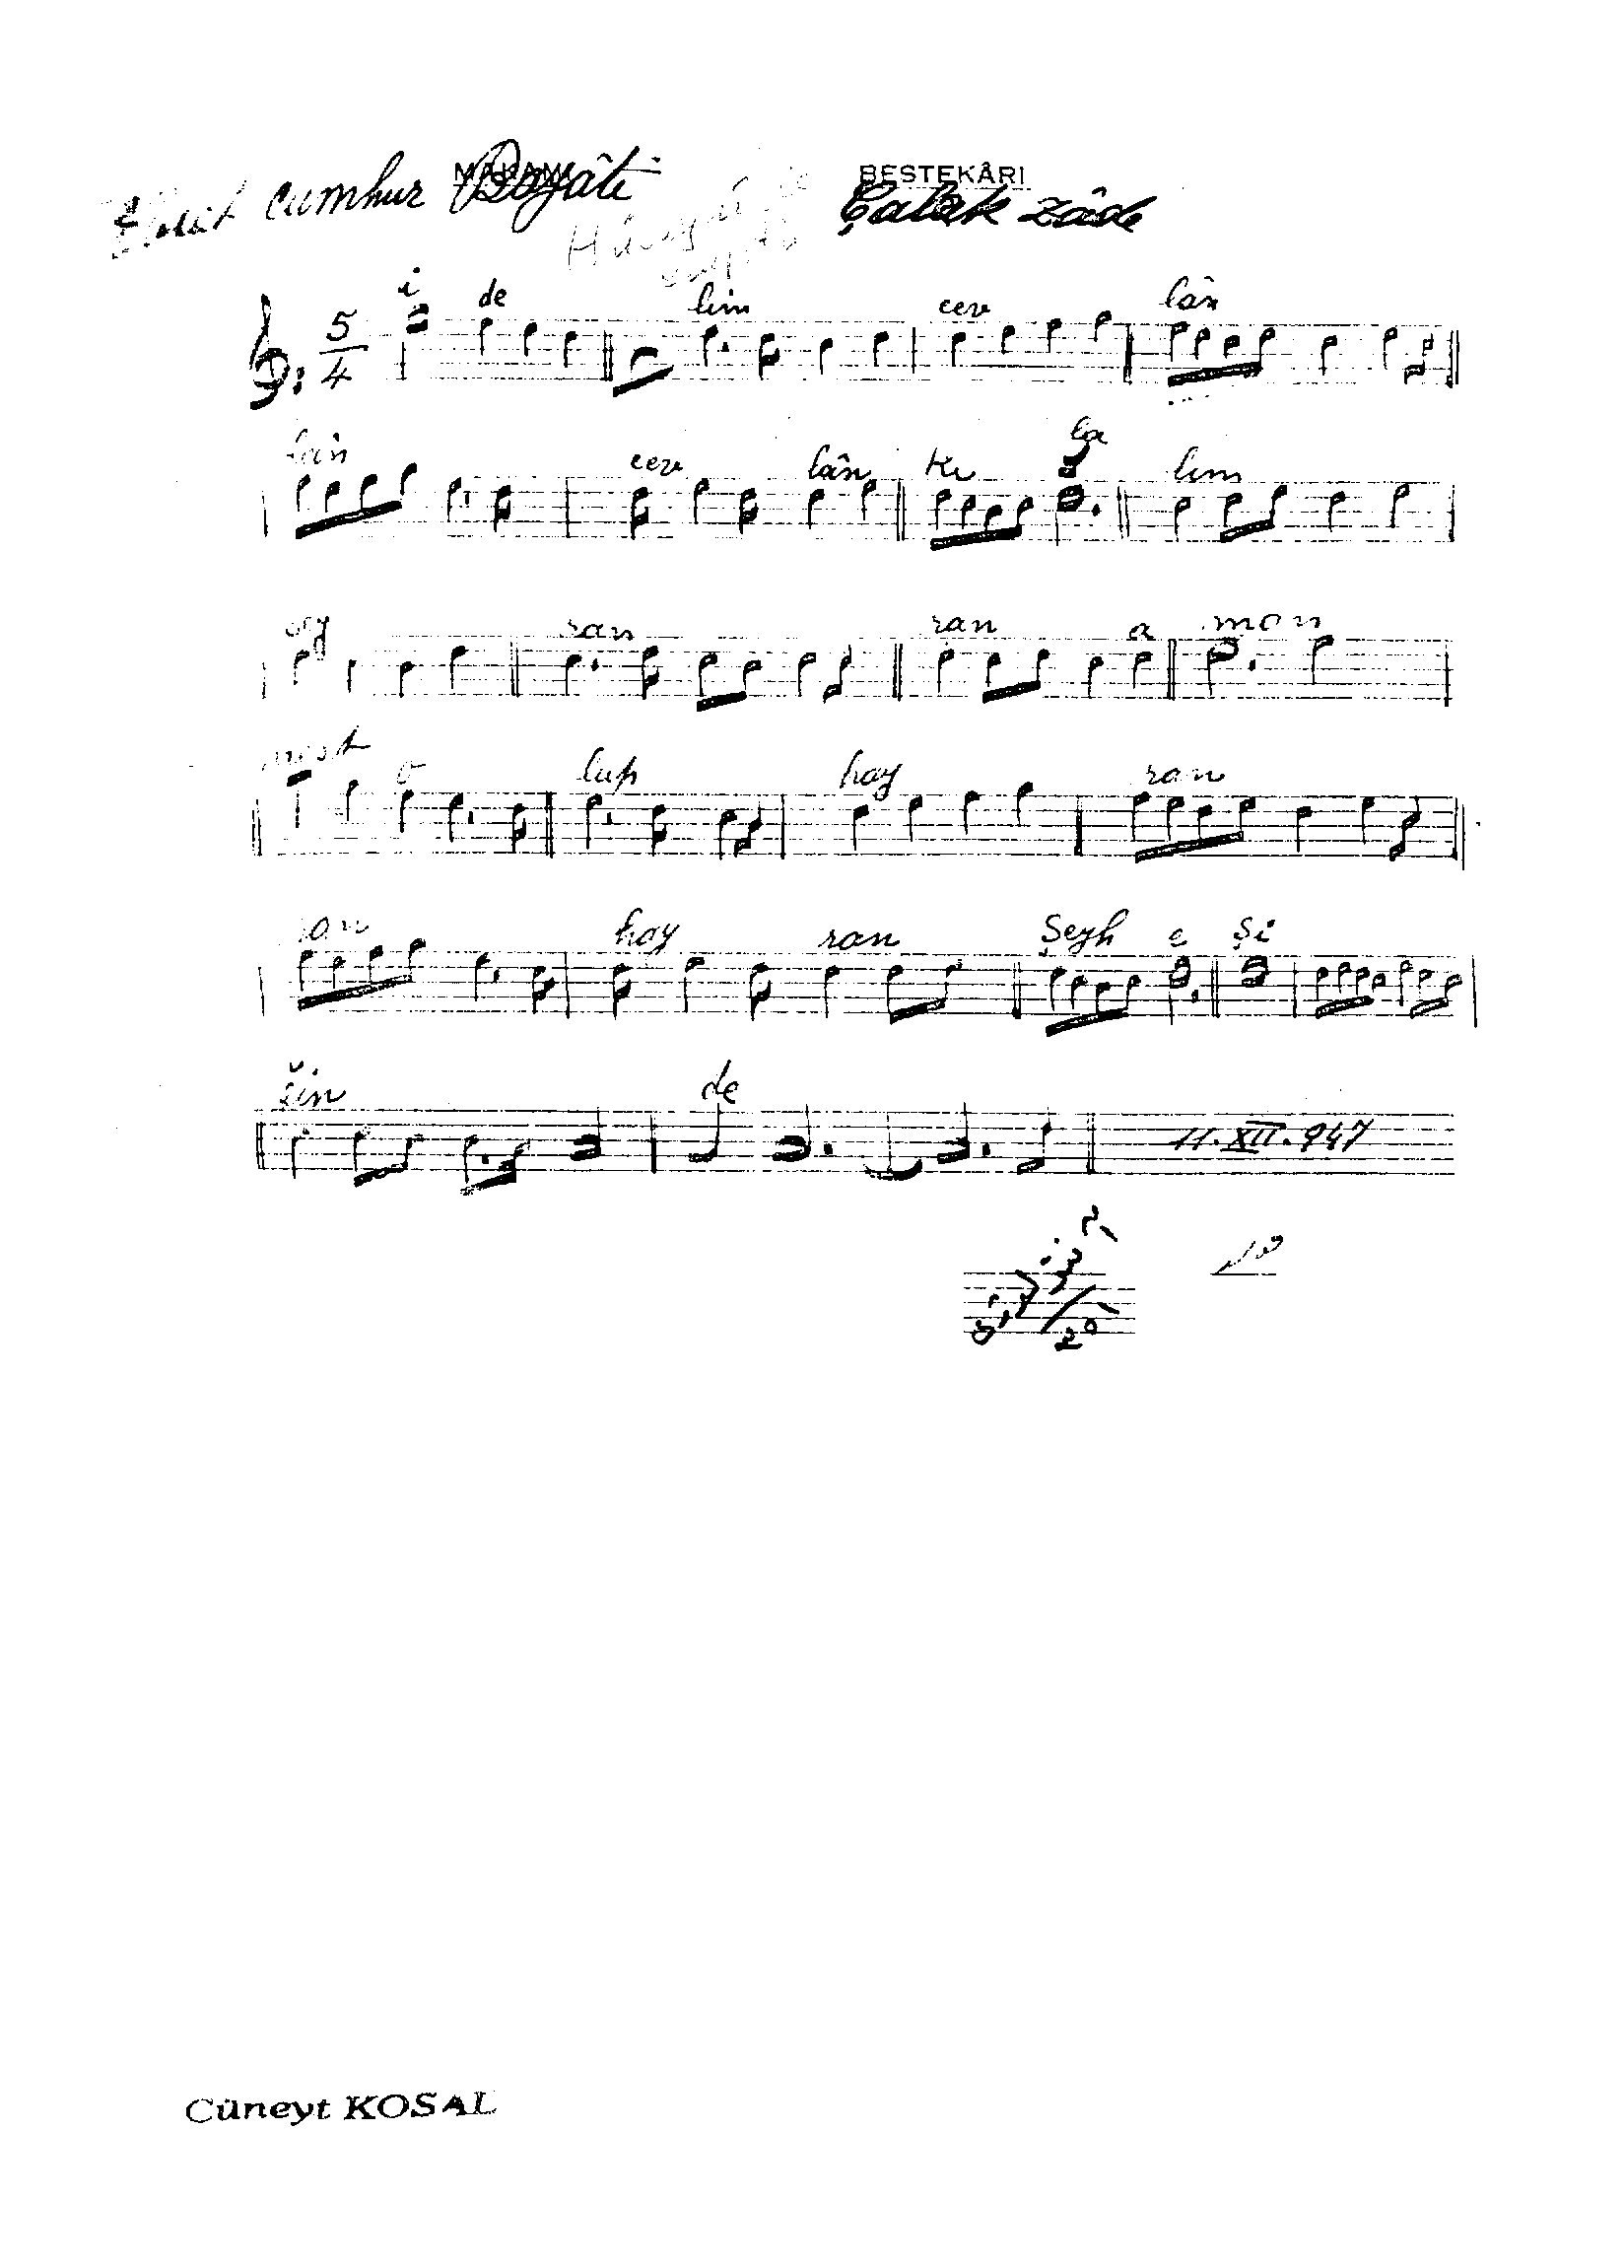 cumhur MAKAMI Bayâti BESTEKÂRI
Çalak zâde
i de lim cev lân
5
4
lân cev lân Kı la lım
ran ran a man
mest o lup hay ran
ran hay ran Şeyh e şi
ğin de
11. XII. 947
Cüneyt KOSAL